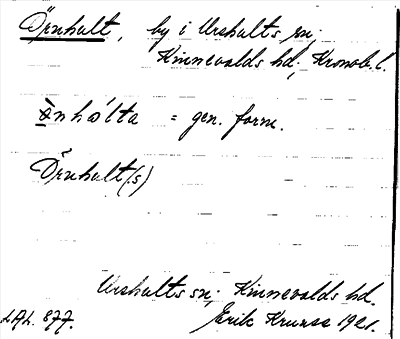 Örnhult, by i Urshults sn;
Kinnevalds hd; Kronob. l.
= gen. form.
Örnhult(s)
Urshults sn; Kinnevalds hd.
LAL. 877.
Erik 1921.